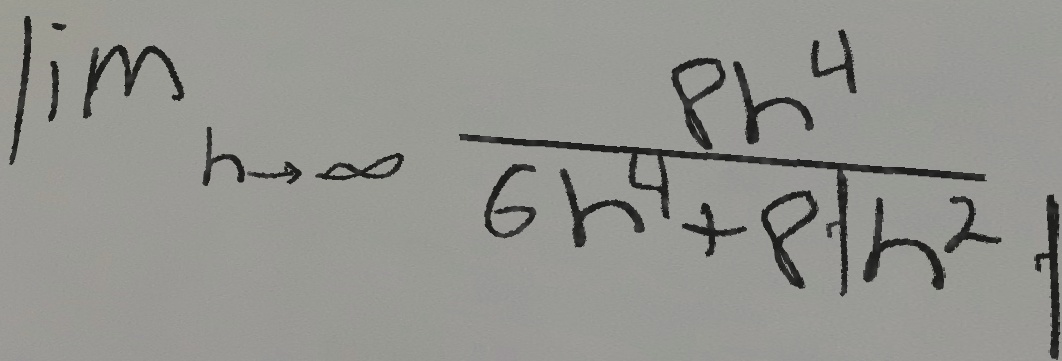 lim h→∞ 8h⁴
6h⁴+81h²1